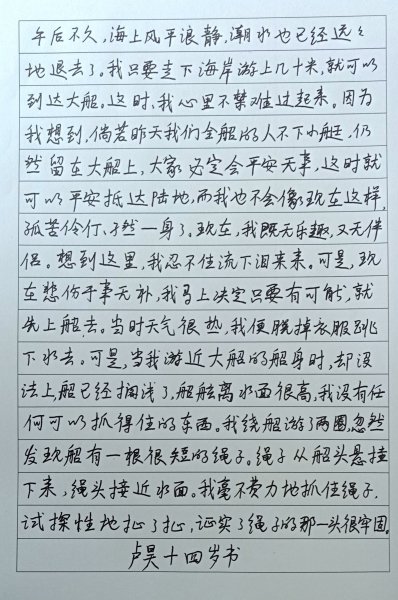 午后不久，海上风平浪静，潮水也已经远远
地退去了。我只要走下海岸游上几十米，就可以
到达大船。这时，我心里不禁难过起来。因为
我想到，倘若昨天我们全船的人不下小艇，仍
然留在大船上，大家必定会平安无事，这时就
可以平安抵达陆地，而我也不会像现在这样，
孤苦伶仃、孑然一身了。现在，我既无乐趣，又无伴
侣。想到这里，我忍不住流下泪来来。可是，现
在悲伤于事无补，我马上决定只要有可能，就
先上船去。当时天气很热，我便脱掉衣服跳
下水去。可是，当我游近大船的船身时，却没
法上船已经搁浅了，船舷离水面很高，我没有任
何可以抓得住的东西。我绕船游了两圈，忽然
发现船有一根很短的绳子。绳子从船头悬挂
下来，绳头接近水面。我毫不费力地抓住绳子，
试探性地扯了扯，证实了绳子的那一头很牢固。
卢昊十四岁书